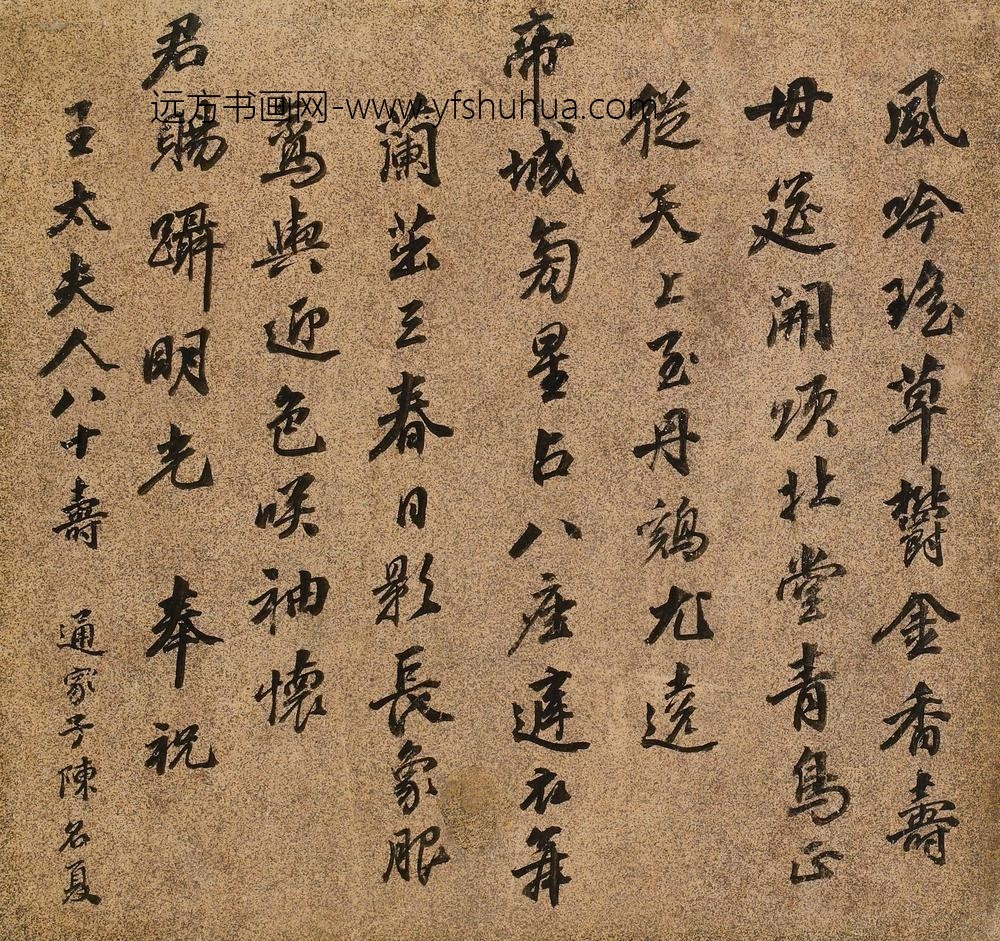 風吟瑤草鬱金香壽
母筵開頌北堂青鳥正
從天上至丹鷄尤遶
帝城旁星占八座遲衣舞
蘭茁三春日影長象服
鸞輿迎色咲袖懷
君賜躡明光 奉祝
王太夫人八十壽 通家子陳名夏
远方书画网-www.yfshuhua.com